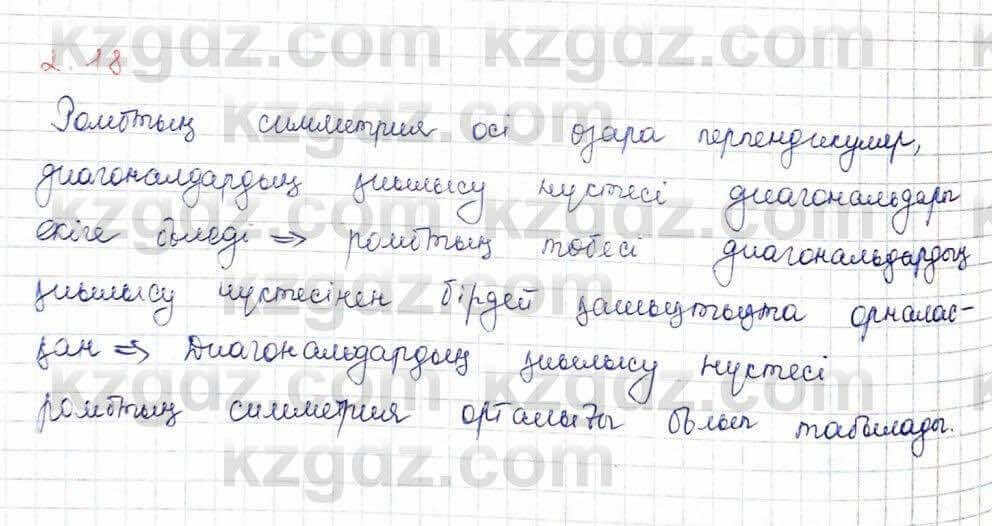 2.18
Ромбтың симметрия осі өзара перпендикуляр,
диагоналдардың қиылысу нүктесі диагональдары
екіге бөледі ⇒ ромбтың төбесі диагональдардың
қиылысу нүктесінен бірдей қашықтықта орналас-
қан ⇒ Диагональдардың қиылысу нүктесі
ромбтың симметрия орталығы болып табылады.
kzgdz.com kzgdz.com
kzgdz.com
kzgdz.com kzgdz.com
kzgdz.com
kzgdz.com kzgdz.com
kzgdz.com